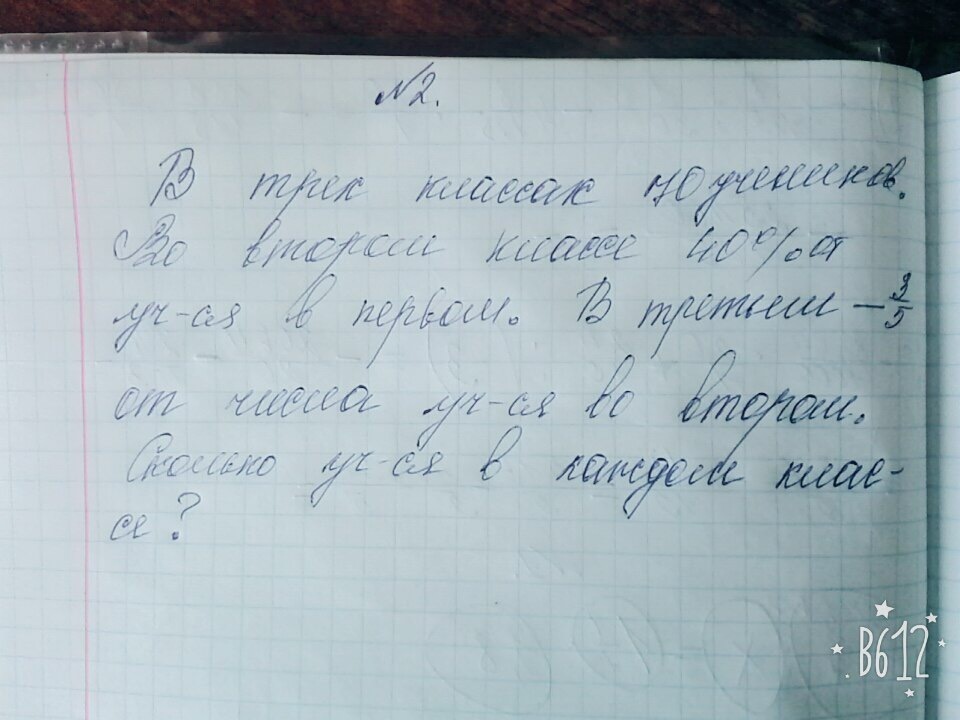 №2.
В трех классах 70 учеников.
Во втором классе 40% от
уч-ся в первом. В третьем – 3/5
от числа уч-ся во втором.
Сколько уч-ся в каждом клас-
се?
B612